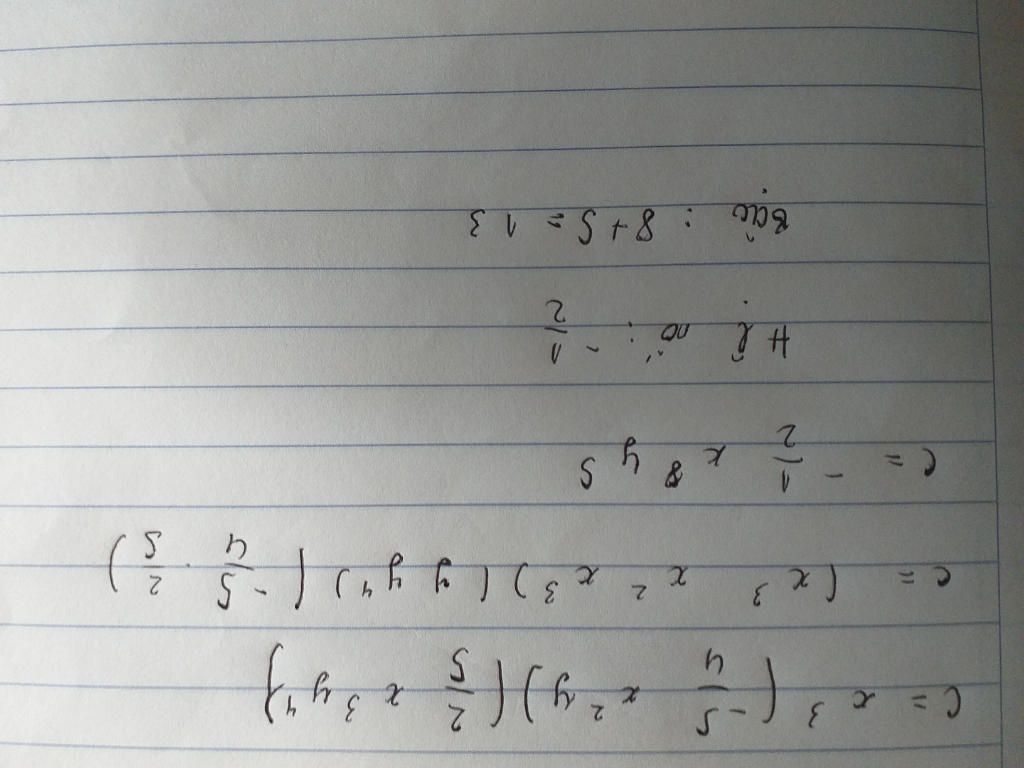 C = x³ (-5/4 x²y) (2/5 x³y⁴)
C = (x³ x² x³) (y y⁴) (-5/4 . 2/5)
C = -1/2 x⁸ y⁵
Hệ số : -1/2
Bậc : 8 + 5 = 13